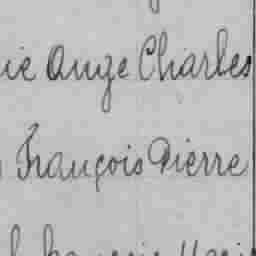 ie Ange Charles
François Pierre